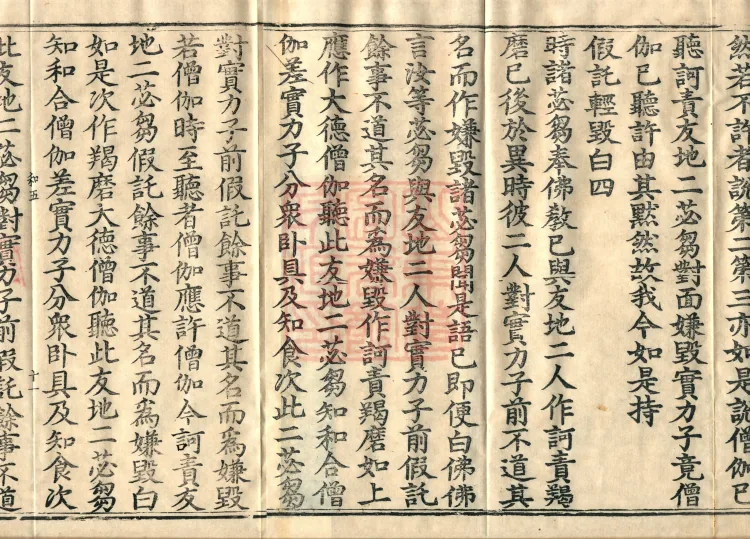 然若不許者說第二第三亦如是說僧伽已
聽訶責友地二苾芻對面嫌毀實力子竟僧
伽已聽許由其默然故我今如是持
假託輕毀白四
時諸苾芻奉佛教已與友地二人作訶責羯
磨已後於異時彼二人對實力子前不道其
名而作嫌毀諸苾芻聞是語已即便白佛佛
言汝等苾芻與友地二人對實力子前假託
餘事不道其名而為嫌毀作訶責羯磨如上
應作大德僧伽聽此友地二苾芻知和合僧
伽差實力子分衆卧具及知食次此二苾芻
對實力子前假託餘事不道其名而為嫌毀
若僧伽時至聽者僧伽應許僧伽今訶責友
地二苾芻假託餘事不道其名而為嫌毀白
如是次作羯磨大德僧伽聽此友地二苾芻
知和合僧伽差實力子分衆卧具及知食次
此友地二苾芻對實力子前假託餘事不道